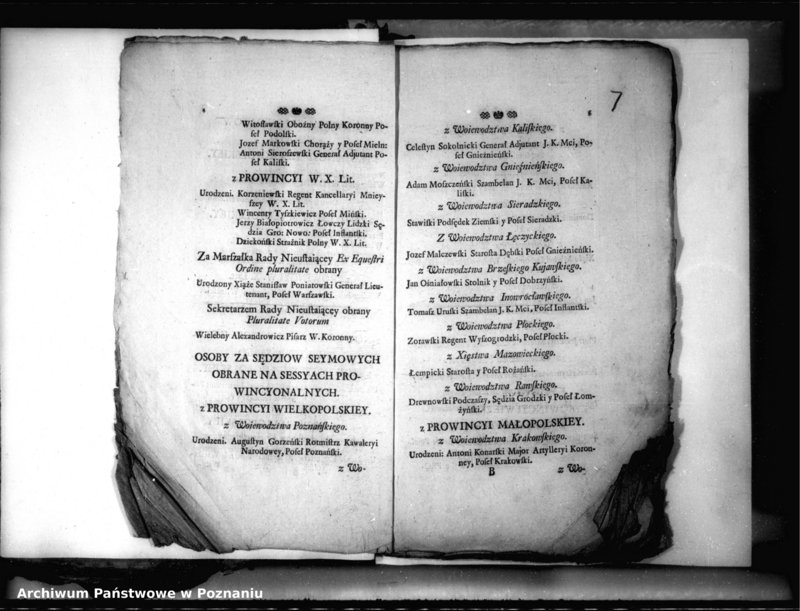 Witosławski Oboźny Polny Koronny Po-
seł Podolski.
Jozef Markowski Chorąży y Poseł Mieln:
Antoni Sieroszewski Generał Adjutant Po-
seł Kaliski.
z PROWINCYI W. X. Lit.
Urodzeni. Korzeniewski Regent Kancellaryi Mniey-
szey W. X. Lit.
Wincenty Tyszkiewicz Poseł Miński.
Jerzy Białopiotrowicz Łowczy Lidzki Sę-
dzia Gro: Nowo: Poseł Inflantski.
Dziekoński Strażnik Polny W. X. Lit.
Za Marszałka Rady Nieustaiącey Ex Equestri
Ordine pluralitate obrany
Urodzony Xiąże Stanisław Poniatowski Generał Lieu-
tenant, Poseł Warszawski.
Sekretarzem Rady Nieustaiącey obrany
Pluralitate Votorum
Wielebny Alexandrowicz Pisarz W. Koronny.
OSOBY ZA SĘDZIOW SEYMOWYCH
OBRANE NA SESSYACH PRO-
WINCYONALNYCH.
z PROWINCYI WIELKOPOLSKIEY.
z Woiewodztwa Poznańskiego.
Urodzeni. Augustyn Gorzeński Rotmistrz Kawaleryi
Narodowey, Poseł Poznański.
z Wo-
7
z Woiewodztwa Kaliskiego.
Celestyn Sokolnicki Generał Adjutant J. K. Mci, Po-
seł Gnieźnieński.
z Woiewodztwa Gnieźnieńskiego.
Adam Moszczeński Szambelan J. K. Mci, Poseł Ka-
liski.
z Woiewodztwa Sieradzkiego.
Stawiski Podsędek Ziemski y Poseł Sieradzki.
Z Woiewodztwa Łęczyckiego.
Jozef Malczewski Starosta Dębski Poseł Gnieźnieński.
z Woiewodztwa Brzeskiego Kujawskiego.
Jan Ośniałowski Stolnik y Poseł Dobrzyński.
z Woiewodztwa Inowrocławskiego.
Tomasz Uruski Szambelan J. K. Mci, Poseł Inflantski.
z Woiewodztwa Płockiego.
Zorawski Regent Wyszogrodzki, Poseł Płocki.
z Xięstwa Mazowieckiego.
Łempicki Starosta y Poseł Rożański.
z Woiewodztwa Rawskiego.
Drewnowski Podczaszy, Sędzia Grodzki y Poseł Łom-
żyński.
z PROWINCYI MAŁOPOLSKIEY.
z Woiewodztwa Krakowskiego.
Urodzeni: Antoni Konarski Major Artylleryi Koron-
ney, Poseł Krakowski.
B z Wo-
Archiwum Państwowe w Poznaniu